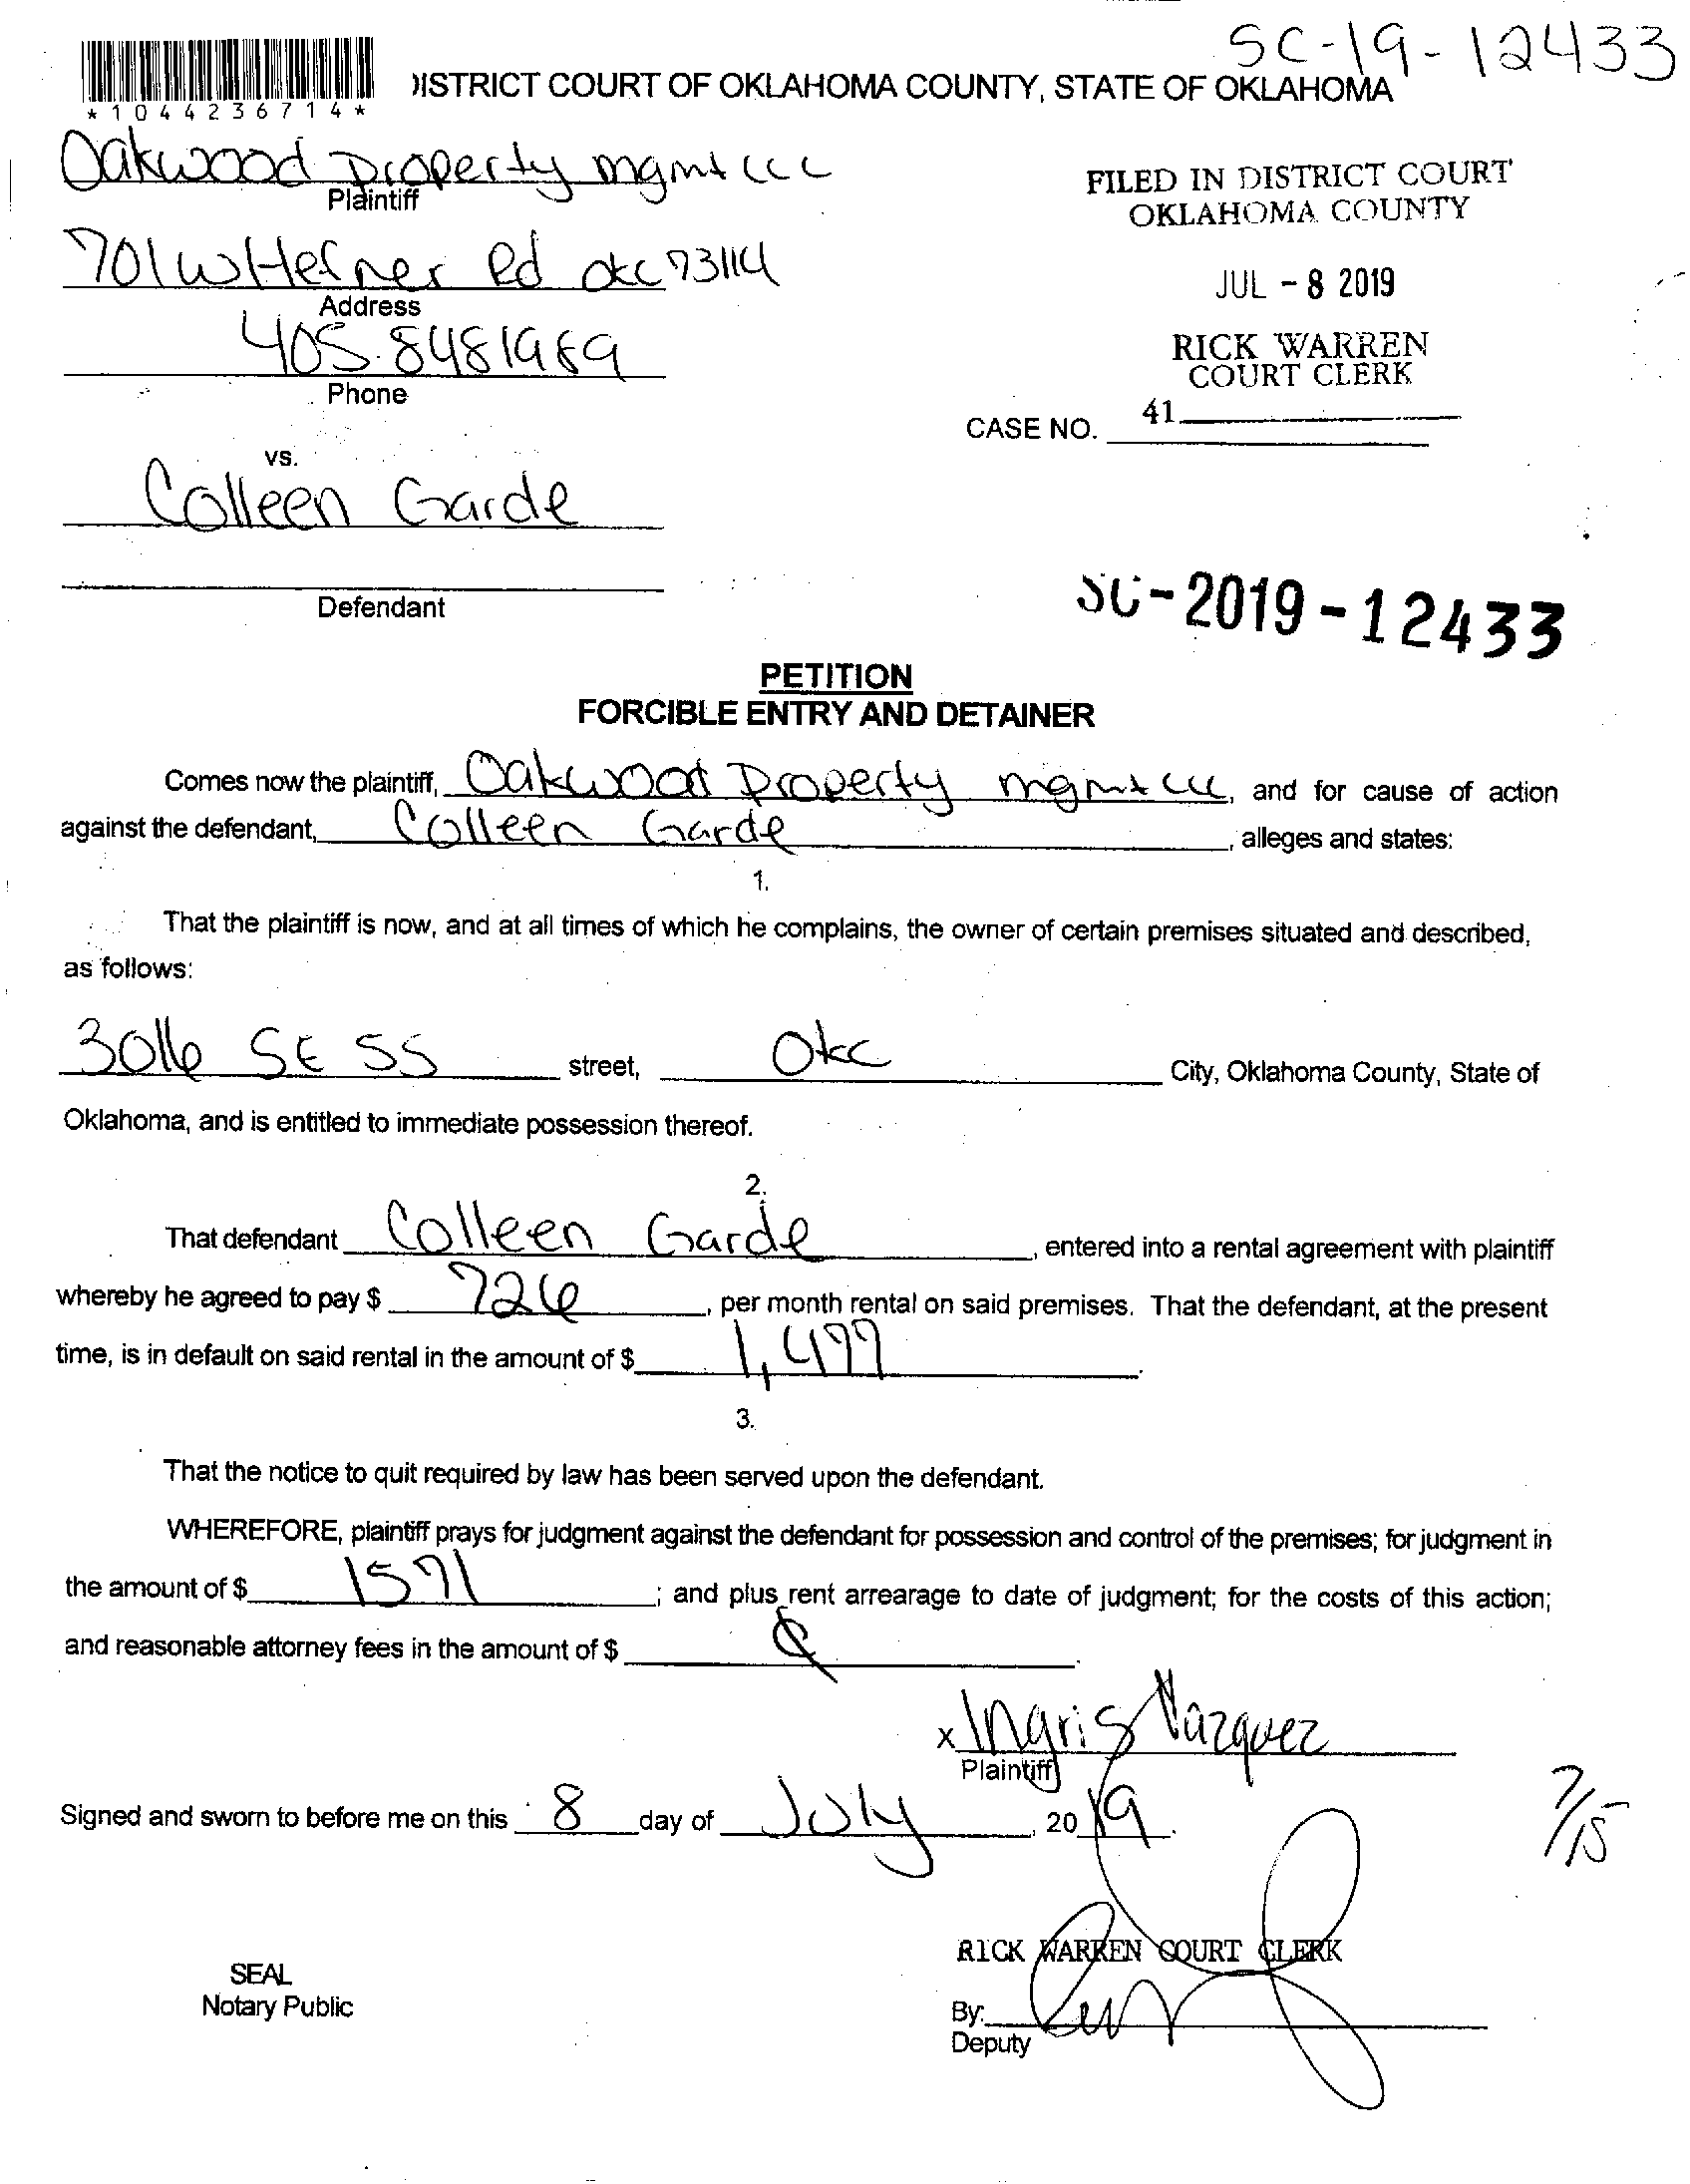 SC-19-12433
*1044236714*
DISTRICT COURT OF OKLAHOMA COUNTY, STATE OF OKLAHOMA
Oakwood Property mgmt LLC
Plaintiff
FILED IN DISTRICT COURT
OKLAHOMA COUNTY
701 W Hefner Rd OKC 73114
Address
JUL - 8 2019
405.8481989
Phone
RICK WARREN
COURT CLERK
41
CASE NO.
vs.
Colleen Garde
Defendant
SC-2019-12433
PETITION
FORCIBLE ENTRY AND DETAINER
Comes now the plaintiff, Oakwood Property mgmt LLC, and for cause of action
against the defendant, Colleen Garde, alleges and states:
1.
That the plaintiff is now, and at all times of which he complains, the owner of certain premises situated and described,
as follows:
3016 SE 55 street, OKC City, Oklahoma County, State of
Oklahoma, and is entitled to immediate possession thereof.
2.
That defendant Colleen Garde, entered into a rental agreement with plaintiff
whereby he agreed to pay $ 726, per month rental on said premises. That the defendant, at the present
time, is in default on said rental in the amount of $ 1,477.
3.
That the notice to quit required by law has been served upon the defendant.
WHEREFORE, plaintiff prays for judgment against the defendant for possession and control of the premises; for judgment in
the amount of $ 1571; and plus rent arrearage to date of judgment; for the costs of this action;
and reasonable attorney fees in the amount of $
x Ingris Vazquez
Plaintiff
Signed and sworn to before me on this 8 day of July, 2019.
7/15
RICK WARREN COURT CLERK
SEAL
Notary Public
By:
Deputy